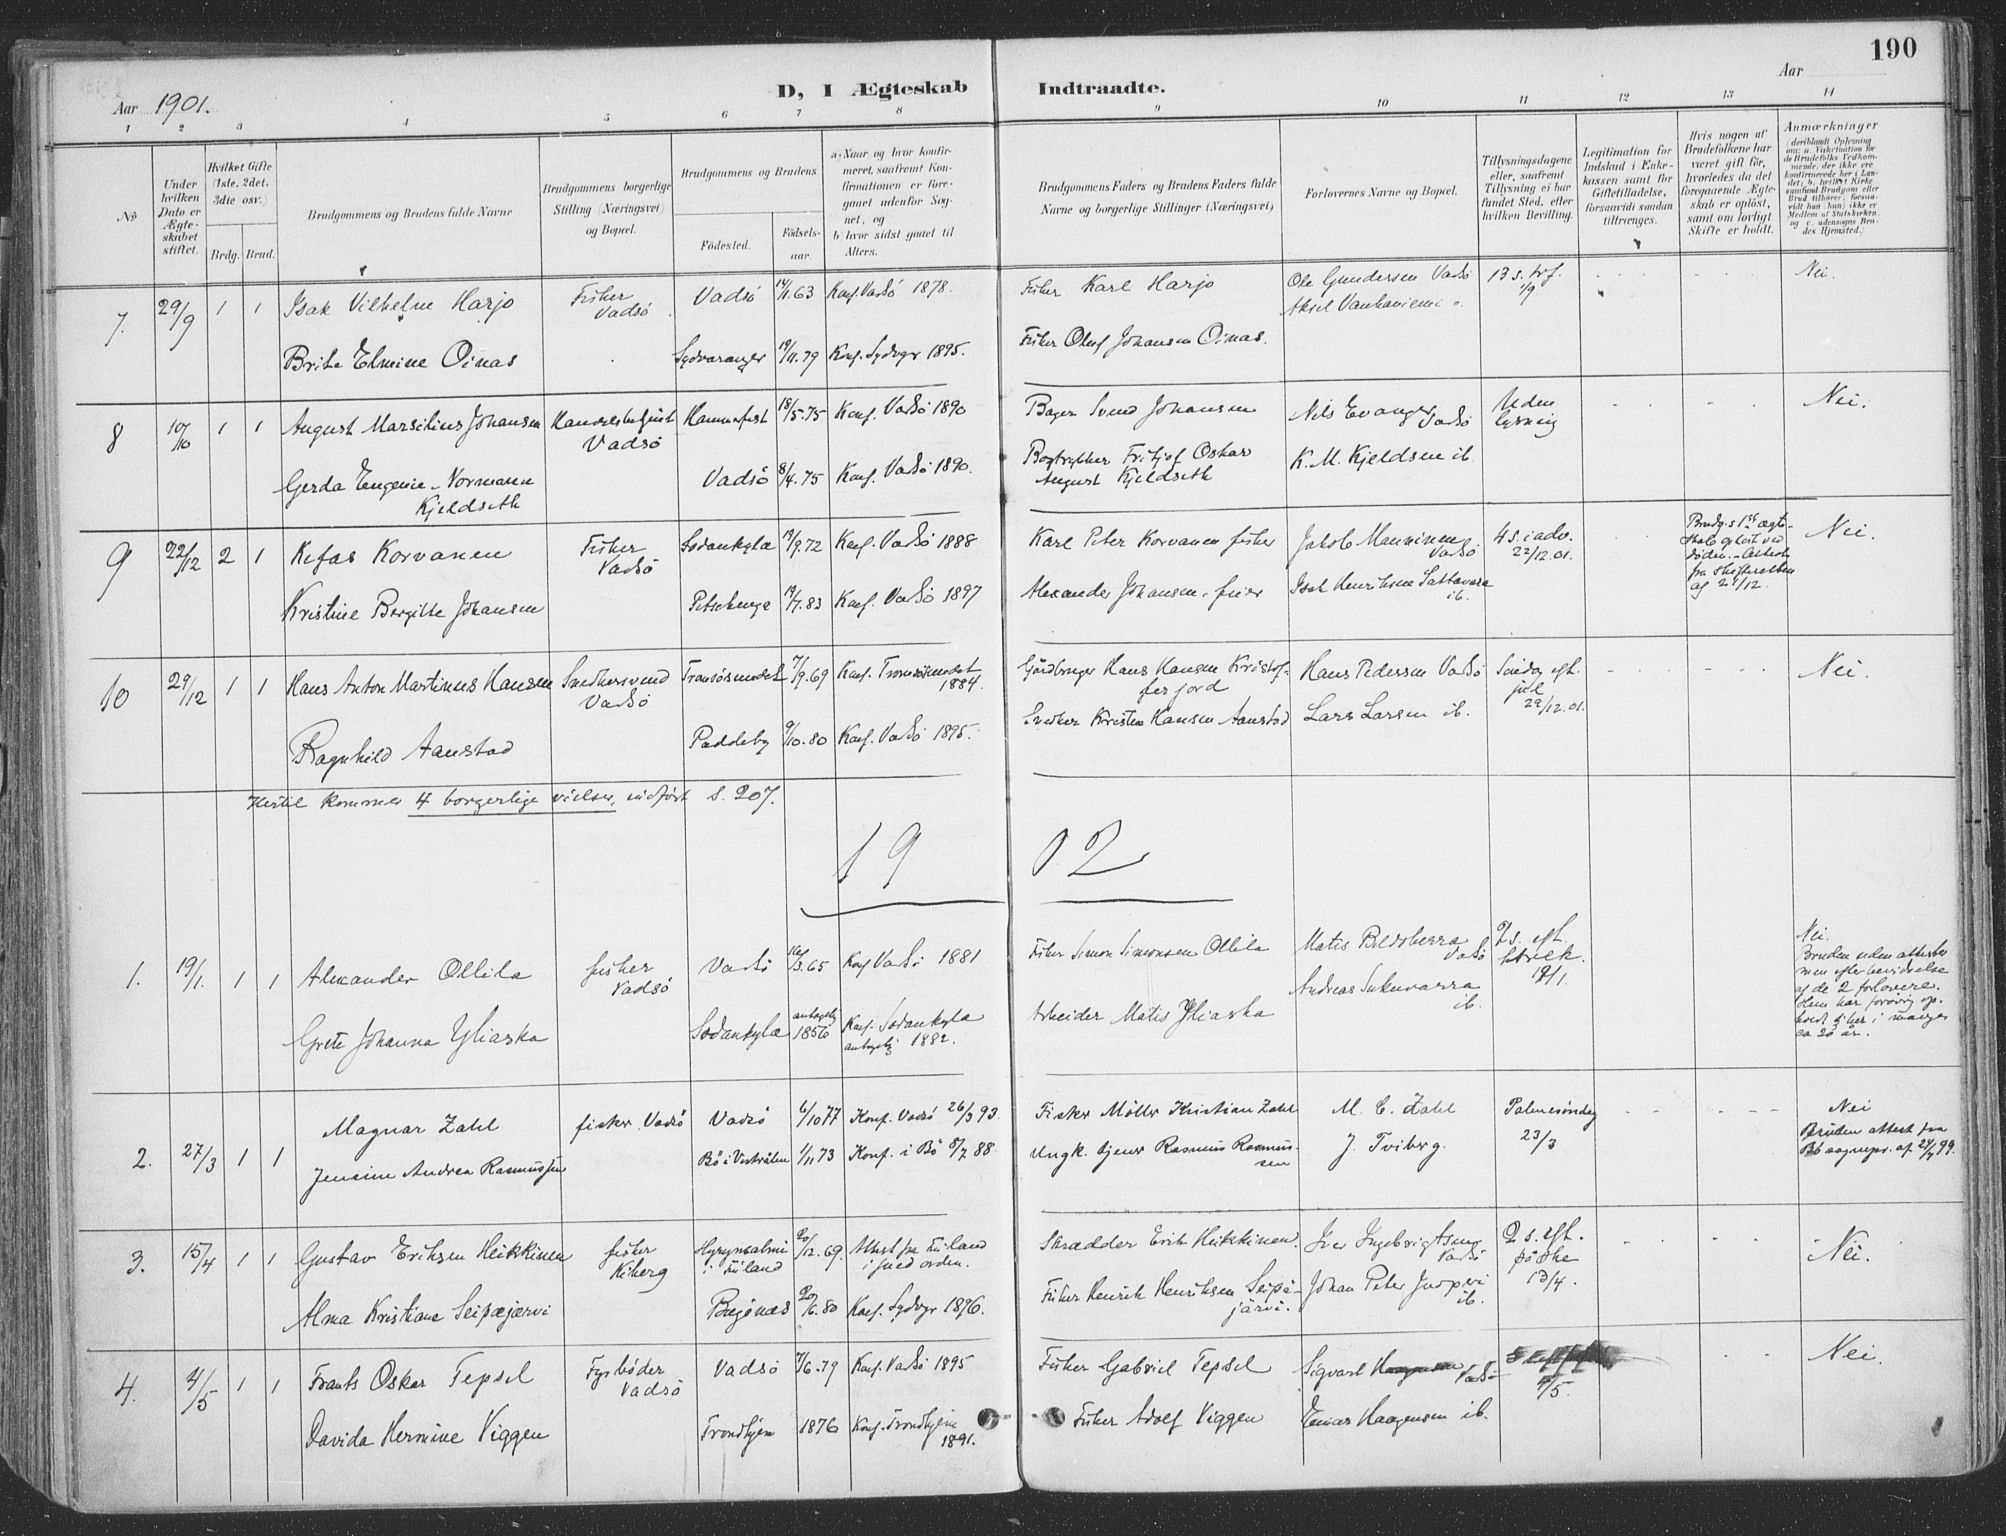 190
D, I Ægteskab Indtraadte.
Aar 1901.
Aar
1 2 3 4 5 6 7 8 9 10 11 12 13 14
No
Under hvilken Dato er Ægteskabet stiftet.
Hvilket Gifte (1ste, 2det, 3die osv.)
Brdg. Brud.
Brudgommens og Brudens fulde Navne
Brudgommens borgerlige Stilling (Næringsvei) og Bopæl.
Brudgommens og Brudens
Födested. Födselsaar.
a) Naar og hvor konfirmeret, saafremt Konfirmationen er foregaaet udenfor Sognet, og
b) hvor sidst gaaet til Alters.
Brudgommens Faders og Brudens Faders fulde Navne og borgerlige Stillinger (Næringsvei)
Forlovernes Navne og Bopæl.
Tillysningsdagene eller, saafremt Tillysning ei har fundet Sted, efter hvilken Bevilling.
Legitimation for Indskud i Enkekassen samt for Giftetilladelse, forsaavidt saadan tiltrænges.
Hvis nogen af Brudefolkene har været gift før, hvorledes da det foregaaende Ægteskab er oplöst, samt om lovligt Skifte er holdt.
Anmærkninger (deriblandt Oplysning om: a. Vakcination for de Brudefolks Vedkommende, der ikke ere konfirmerede her i Landet; b. hvilket Kirkesamfund Brudgom eller Brud tilhører, forsaavidt han (hun) ikke er Medlem af Statskirken, og c. udensogns Brudes Hjemsted.)
7. 29/9 1 1 Isak Vilhelm Harjo Fisker Vadsö Vadsö 14/1.63 Konf. Vadsö 1878. Fisker Karl Harjo Ole Gundersen Vadsö 13 s. trf. 1/9 Nei.
Aksel Vanhaniemi
Brita Elmine Oinas Sydvaranger 19/11.79 Konf. Sydvgr 1895. Fisker Oluf Johansen Oinas.
8 10/10 1 1 August Marselius Johansen Handelsbetjent Vadsö Hammerfest 18/5.75 Konf. Vadsö 1890 Bager Svend Johansen Nils Evanger Vadsö Uden lysning Nei.
Gerda Eugenie Normann Kjeldseth Vadsö 8/4.75 Konf. Vadsö 1890. Bogtrykker Fritjof Oskar August Kjeldseth K. M. Kjeldsen ib.
9 22/12 2 1 Kefas Korvanen Fisker Vadsö Sodankyla 19/9.72 Konf. Vadsö 1888 Karl Peter Korvanen fisker Jakob Manninen Vadsö 4 s. i adv. 22/12.01. Brudg.s 1ste ægteskab oplöst ved döden. Attest fra skifteretten af 21/12. Nei.
Kristine Bergitte Johansen Petschenga 19/7.83 Konf. Vadsö 1897 Alexander Johansen, feier Isak Henriksen Sattavara ib.
10 29/12 1 1 Hans Anton Martinus Hansen Snedkersvend Vadsö Tromsösundet 7/9.69 Konf. Tromsösundet 1884. Gårdbruger Hans Hansen Kristofferjord Hans Pedersen Vadsö Söndag eft. jul 29/12.01. Nei.
Ragnhild Aanstad Paddeby 9/10.80 Konf. Vadsö 1895. Snedker Kristen Hansen Aanstad Lars Larsen ib.
Hertil kommer 4 borgerlige vielser, indført s. 207.
1902
1. 19/1. 1 1 Alexander Ollila fisker Vadsö Vadsö 16/3.65 Konf Vadsö 1881 Fisker Simon Simonsen Ollila Matis Poldokerra Vadsö 2 s. eft. h3k. 19/1 Nei.
Bruden uden attester men efter bevidnelse af de 2 forlovere. Hun har forøvrig opholdt sig her i mange ca 20 år.
Grete Johanna Yliaska Sodankyla antagelig 1856 Konf. Sodankyla antagelig 1882. Arbeider Matis Yliaska Andreas Sukuvarra ib.
2. 27/3 1 1 Magnar Zahl fisker Vadsö Vadsö 6/10 77 Konf. Vadsö 26/3 93. Fisker Möller Kristian Zahl M. C. Zahl Palmesöndag 23/3 Nei
Jensine Andrea Rasmussen Bö i Vesterålen 1/11 73 Konf. i Bö 8/7 88. Ungk. tjener Rasmus Rasmussen J. Tviberg. Bruden attest fra Bö sognepr. af 24/7 99.
3. 15/4 1 1 Gustav Eriksen Heikkinen fisker Kiberg Hyrynsalmi i Finland 20/12.69 Attest fra Finland i god orden. Skrædder Erik Heikkinen. Iver Ingebrigtsen Vadsö 2 s. eft. påske 13/4. Nei.
Alma Kristiane Seipæjærvi Bugönæs 20/6.80 Konf. Sydvgr 1896. Fisker Henrik Henriksen Seipäjärvi. Johan Peter ib.
4. 4/5 1 1 Frants Oskar Tepsel Fyrbøder Vadsö Vadsö 7/6.79 Konf. Vadsö 1895 Fisker Gabriel Tepsel Sigvart Vadsö 4/5. Nei.
Davida Hermine Viggen Trondhjem 1876 Konf. Trondhjem 1891. Fisker Adolf Viggen Einar Haagensen ib.